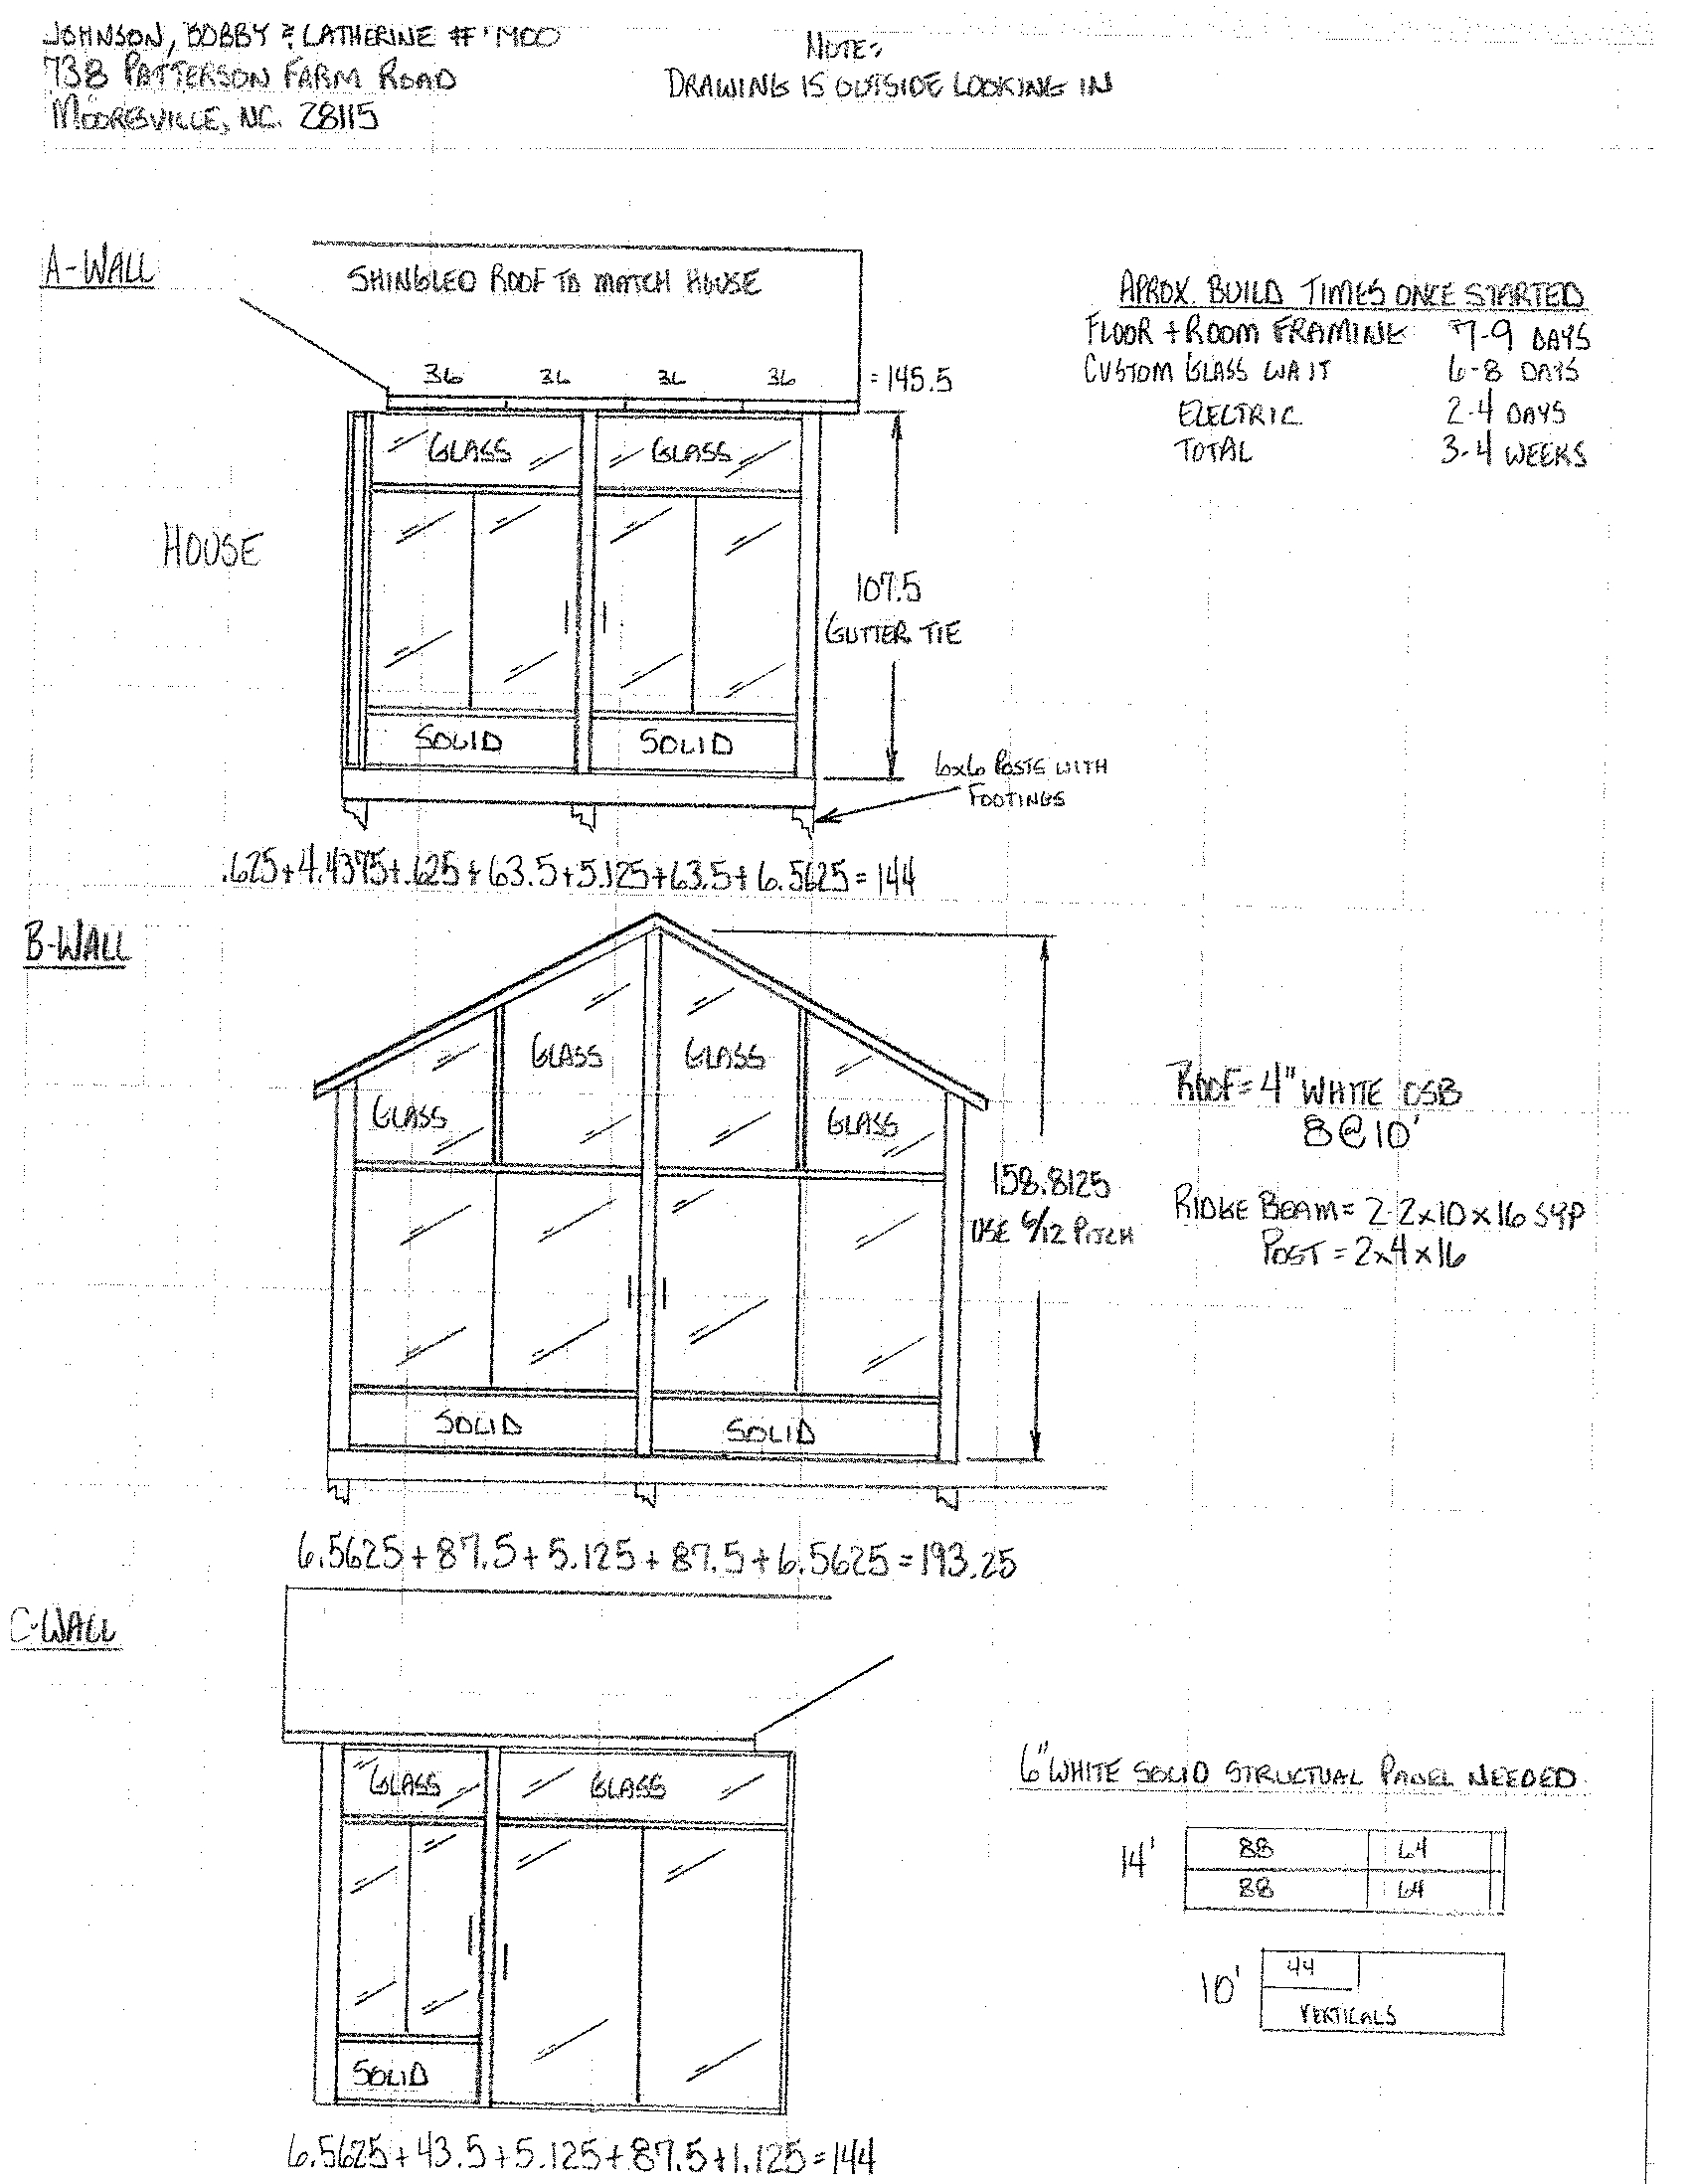 JOHNSON, BOBBY & CATHERINE # 1400
738 PATTERSON FARM ROAD
MOORESVILLE, NC. 28115
NOTE:
DRAWING IS OUTSIDE LOOKING IN
A-WALL
SHINGLED ROOF TO MATCH HOUSE
36 36 36 36 = 145.5
GLASS GLASS
HOUSE
107.5
GUTTER TIE
SOLID SOLID
6x6 POSTS WITH
FOOTINGS
.625+4.4375+.625+63.5+5.125+63.5+6.5625=144
APROX. BUILD TIMES ONCE STARTED
FLOOR + ROOM FRAMING 7-9 DAYS
CUSTOM GLASS WAIT 6-8 DAYS
ELECTRIC 2-4 DAYS
TOTAL 3-4 WEEKS
B-WALL
GLASS GLASS
GLASS GLASS
158.8125
USE 6/12 PITCH
SOLID SOLID
6.5625+87.5+5.125+87.5+6.5625=193.25
ROOF=4" WHITE OSB
8@10'
RIDGE BEAM=2-2x10x16 SYP
POST=2x4x16
C-WALL
GLASS GLASS
SOLID
6.5625+43.5+5.125+87.5+1.125=144
6" WHITE SOLID STRUCTUAL PANEL NEEDED
14' 88 64
88 64
10' 44
VERTICALS